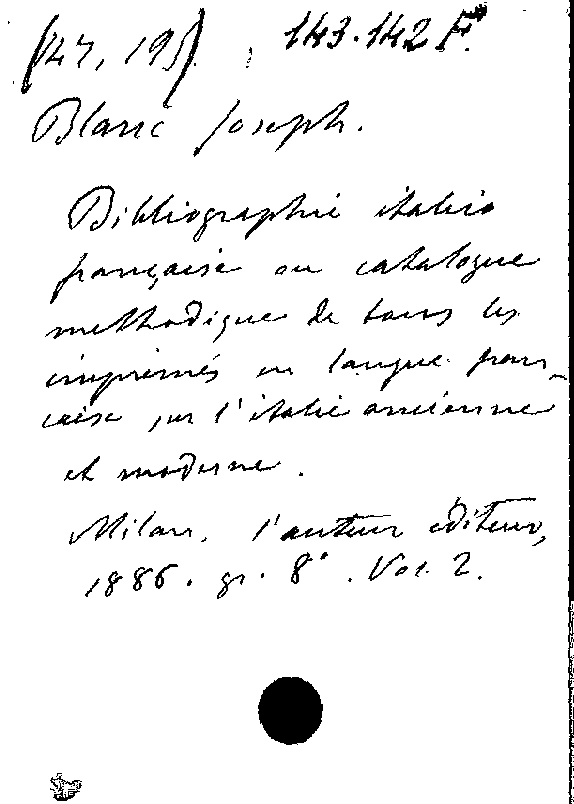 (47, 19) 143.142 F.
Blanc Joseph.
Bibliographie italico
française ou catalogue
méthodique de tous les
imprimés en langue fran-
çaise sur l'italie ancienne
et moderne.
Milan, l'auteur éditeur,
1886. gr. 8°. Vol. 2.